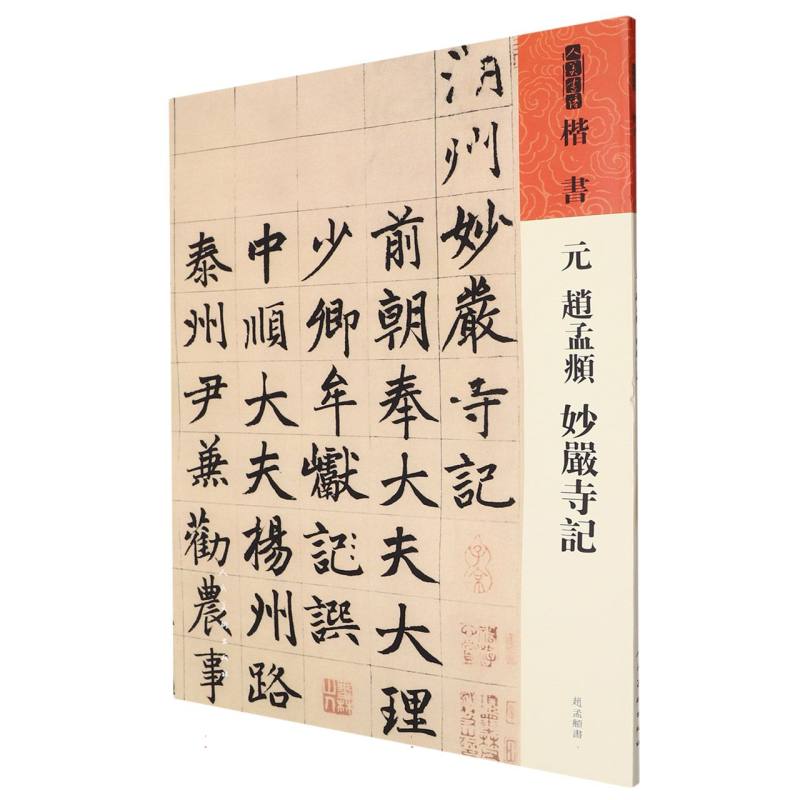 人美書譜
楷書
元 趙孟頫 妙嚴寺記
趙孟頫書
湖州妙嚴寺記
前朝奉大夫大理
少卿牟巘記撰
中順大夫楊州路
泰州尹兼勸農事